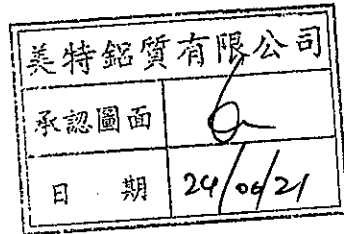 美特鋁質有限公司
承認圖面
日 期 24/06/21